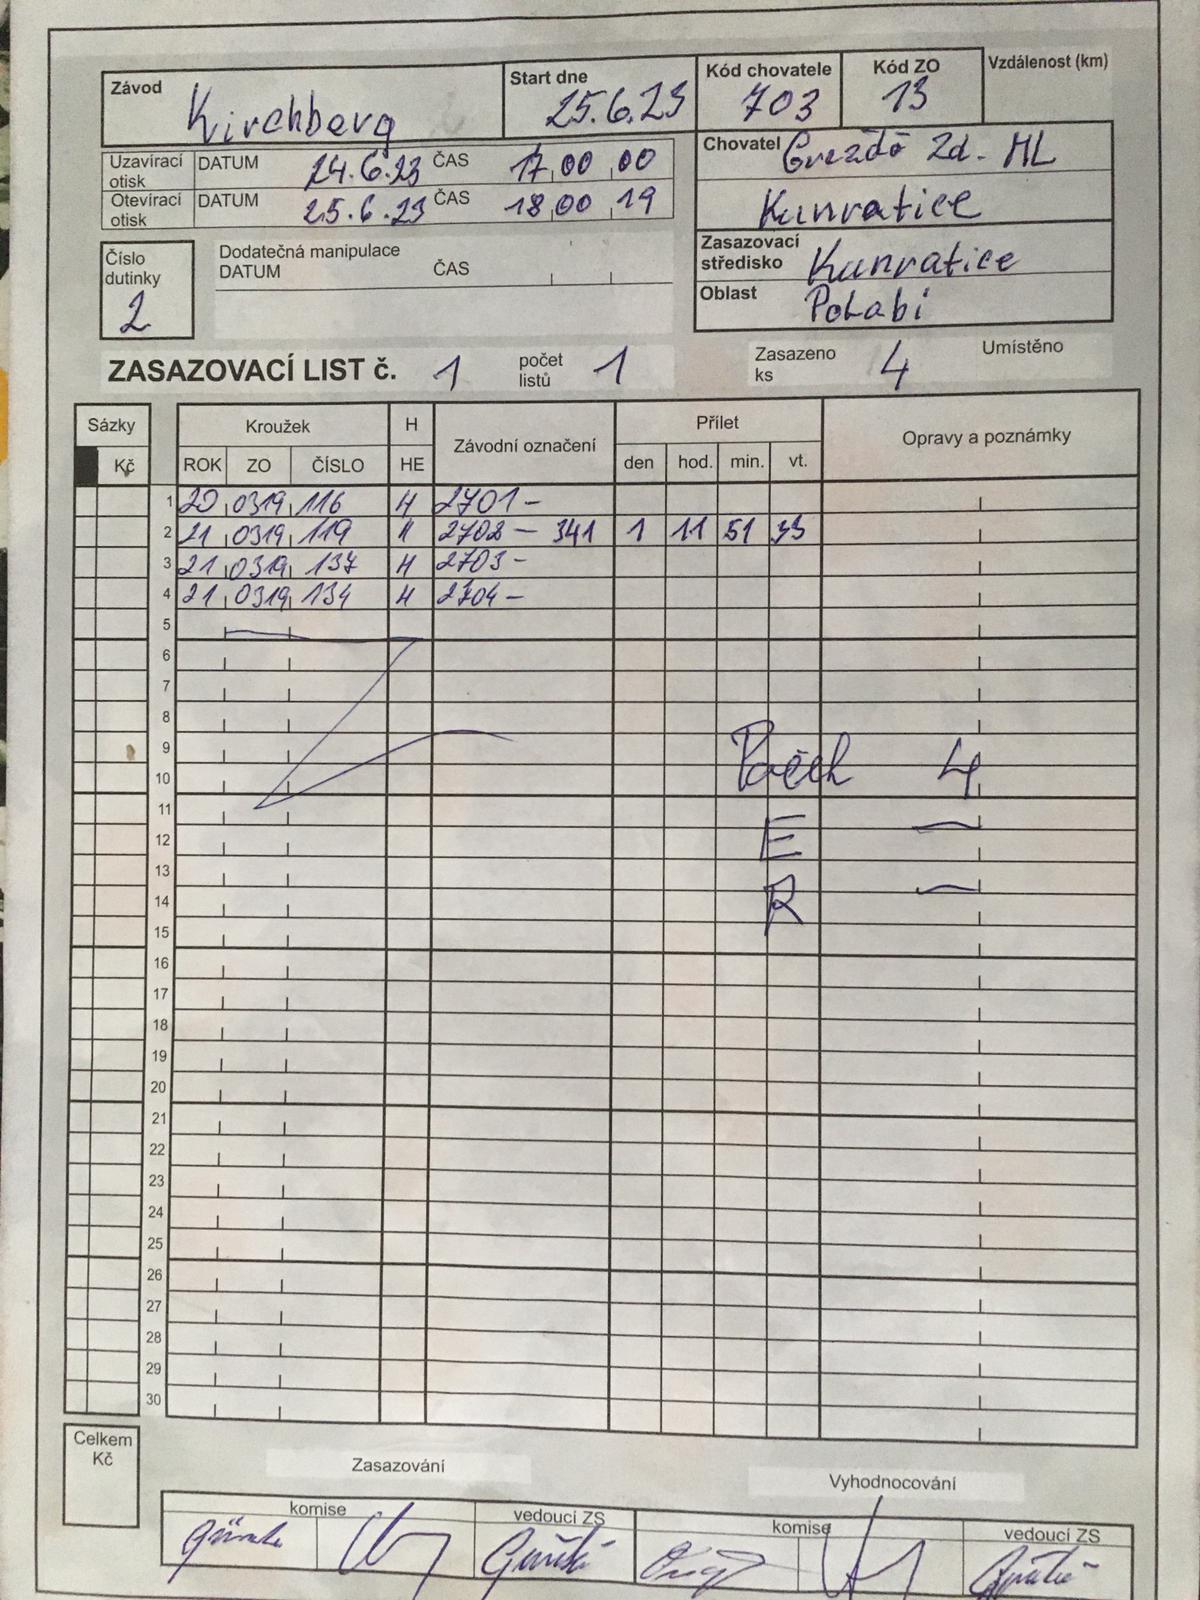 Závod Kirchberg Start dne 25.6.23 Kód chovatele 703 Kód ZO 13 Vzdálenost (km)
Uzavírací otisk DATUM 24.6.23 ČAS 17 00 00
Otevírací otisk DATUM 25.6.23 ČAS 18 00 19
Chovatel Zd. ML
Kunratice
Zasazovací středisko Kunratice
Oblast PoLabí
Číslo dutinky 2
Dodatečná manipulace
DATUM ČAS
ZASAZOVACÍ LIST č. 1 počet listů 1 Zasazeno ks 4 Umístěno
Sázky Kroužek H Závodní označení Přílet Opravy a poznámky
Kč ROK ZO ČÍSLO HE den hod. min. vt.
1 20 0319 116 H 2701 -
2 21 0319 119 " 2702 - 341 1 11 51 33
3 21 0319 137 H 2703 -
4 21 0319 134 H 2704 -
5
6
7
8
9
Počeh 4
10
11
12 E —
13
14 R —
15
16
17
18
19
20
21
22
23
24
25
26
27
28
29
30
Celkem Kč
Zasazování Vyhodnocování
komise vedoucí ZS komise vedoucí ZS